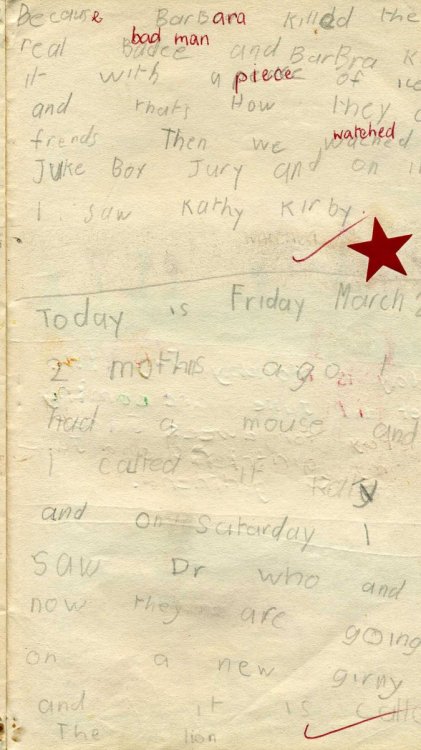 Because BarBara killed the
bad man
real Badee and BarBra k
it with a piece of ice
and thats How they
watched
frends Then we wached
Juke Box Jury and on it
I saw Kathy Kirby.
Today is Friday March 2
2 moths ago I
had a mouse and
I called it
and on Saturday I
saw Dr who and
now they are going
on a new girny
and it is calle
The lion